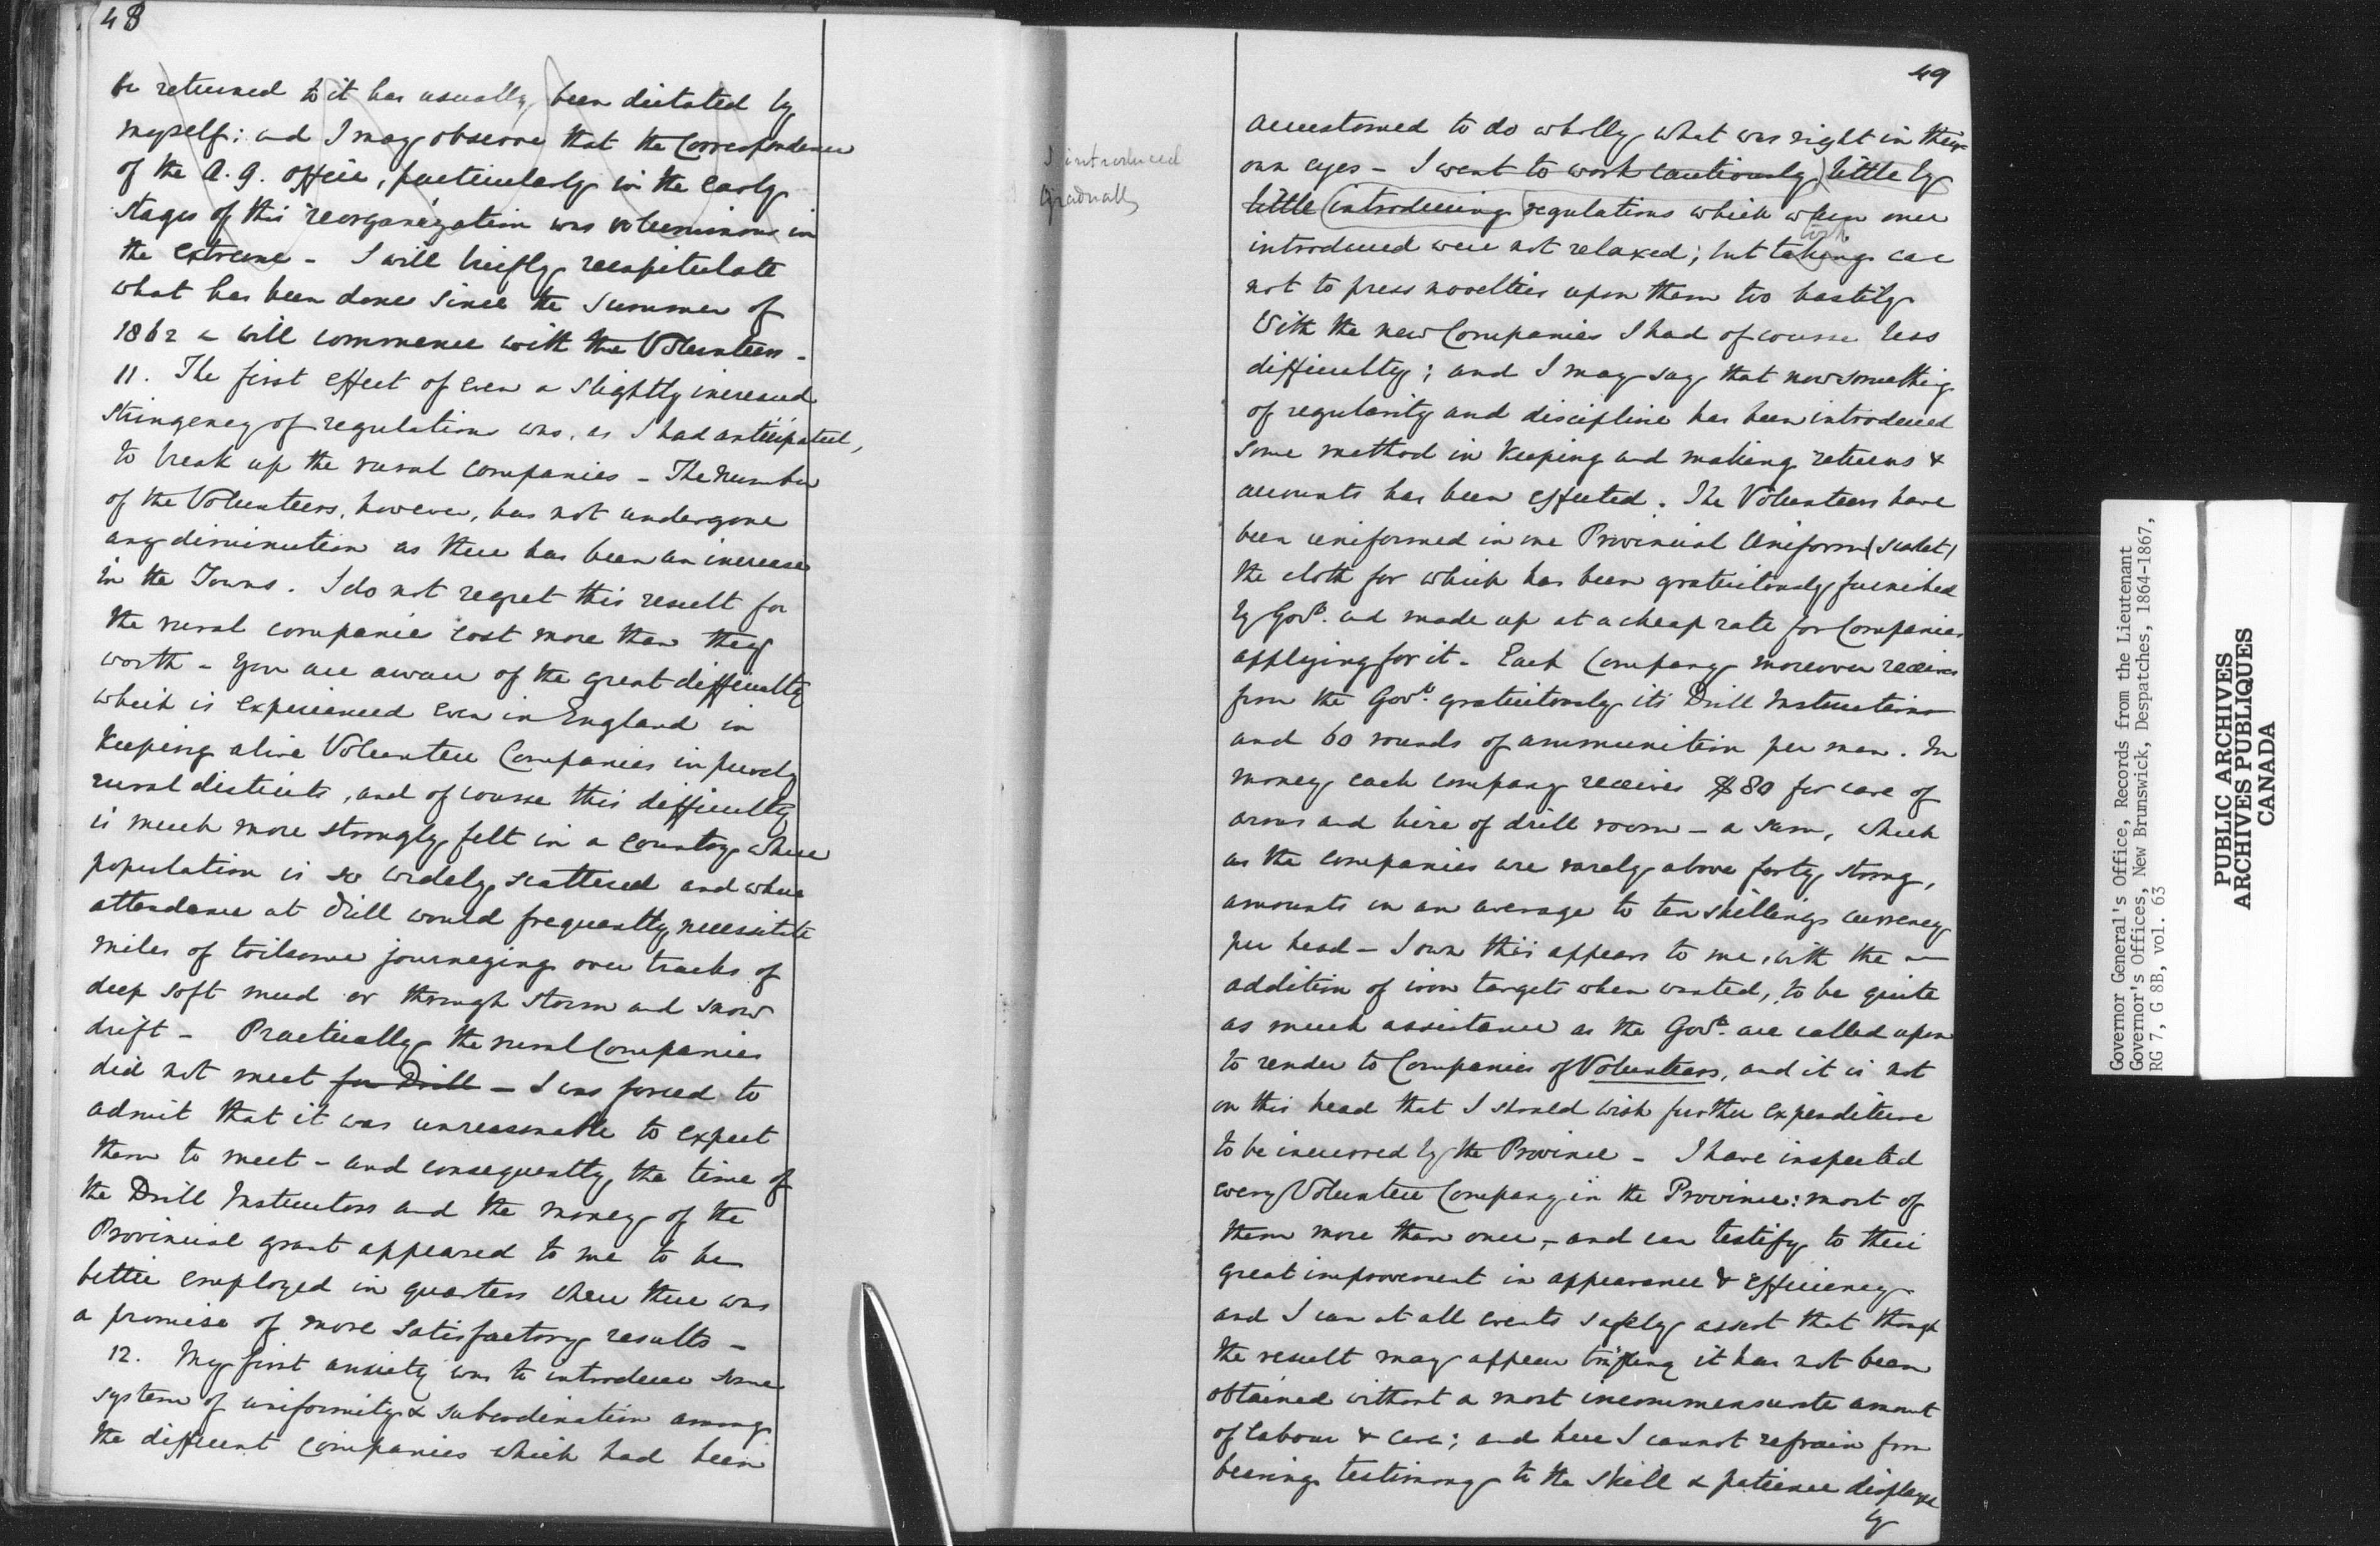 48
be returned to it has usually been dictated by
myself: and I may observe that the Correspondence
of the A. G. Office, particularly in the early
stages of this reorganization was voluminous in
the extreme - I will briefly recapitulate
what has been done since the Summer of
1862 & will commence with the Volunteers -
11. The first effect of even a slightly increased
stringency of regulations was, as I had anticipated,
to break up the rural companies - The number
of the Volunteers, however, has not undergone
any diminution as there has been an increase
in the Towns. I do not regret this result for
the rural companies cost more than they
worth - You are aware of the great difficulty
which is experienced even in England in
keeping alive Volunteer Companies in purely
rural districts, and of course this difficulty
is much more strongly felt in a country where
population is so widely scattered and where
attendance at drill would frequently necessitate
miles of toilsome journeying over tracks of
deep soft mud or through storm and snow
drift - Practically the rural Companies
did not meet for Drill - I was forced to
admit that it was unreasonable to expect
them to meet - and consequently the time of
the Drill Instructors and the money of the
Provincial grant appeared to me to be
better employed in quarters where there was
a promise of more satisfactory results -
12. My first anxiety was to introduce some
system of uniformity & subordination among
the different companies which had been
49
I introduced
gradually
accustomed to do wholly what was right in their
own eyes - I went to work cautiously, little by
little introducing regulations which when once
took
introduced were not relaxed; but taking care
not to press novelties upon them too hastily
With the new Companies I had of course less
difficulty; and I may say that now something
of regularity and discipline has been introduced
some method in keeping and making returns &
accounts has been effected. The Volunteers have
been uniformed in one Provincial Uniform (scarlet)
the cloth for which has been gratuitously furnished
by Govt. and made up at a cheap rate for Companies
applying for it. Each Company moreover receives
from the Govt. gratuitously its Drill Instructions
and 60 rounds of ammunition per man. In
money each company receives $80 for care of
arms and hire of drill room - a sum, which
as the companies are rarely above forty strong,
amounts on an average to ten shillings currency
per head - I own this appears to me, with the
addition of iron targets when wanted, to be quite
as much assistance as the Govt. are called upon
to render to Companies of Volunteers, and it is not
on this head that I should wish further expenditure
to be incurred by the Province - I have inspected
every Volunteer Company in the Province: most of
them more than once, - and can testify to their
great improvement in appearance & efficiency
and I can at all events safely assert that though
the result may appear trifling it has not been
obtained without a most incommensurate amount
of labour & care; and here I cannot refrain from
bearing testimony to the skill & patience displayed
by
Governor General's Office, Records from the Lieutenant
Governor's Offices, New Brunswick, Despatches, 1864-1867,
RG 7, G 8B, vol. 63
PUBLIC ARCHIVES
ARCHIVES PUBLIQUES
CANADA